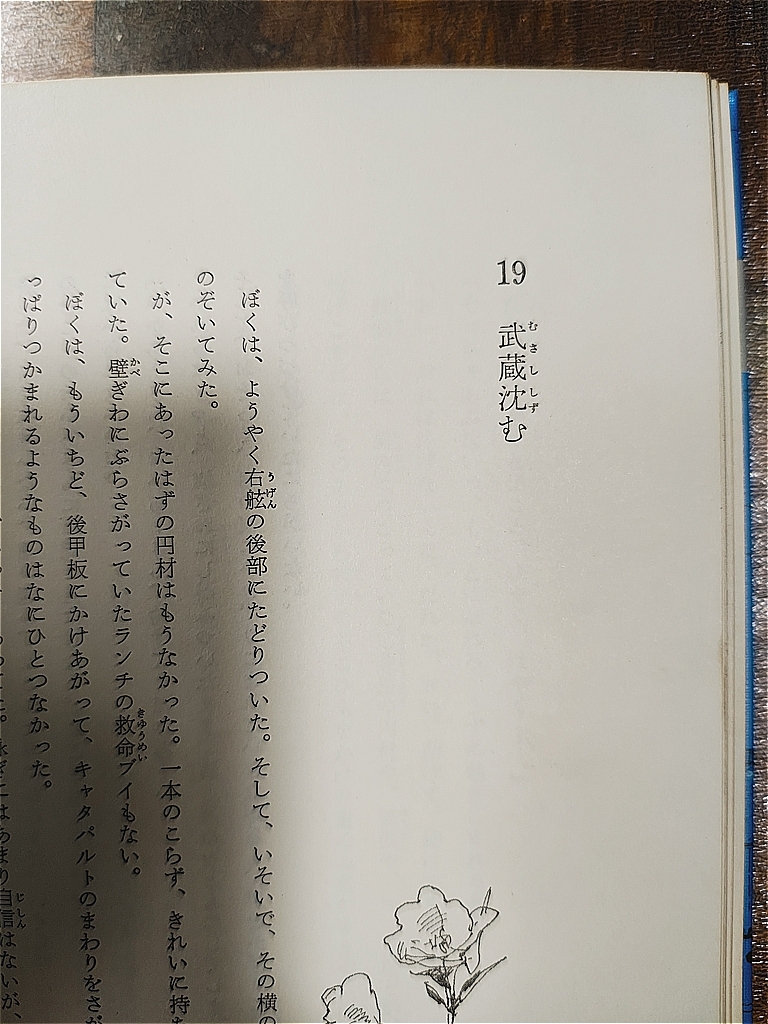 19 武蔵沈む
ぼくは、ようやく右舷の後部にたどりついた。そして、いそいで、その横の
のぞいてみた。
が、そこにあったはずの円材はもうなかった。一本のこらず、きれいに持ち
ていた。壁ぎわにぶらさがっていたランチの救命ブイもない。
ぼくは、もういちど、後甲板にかけあがって、キャタパルトのまわりをさが
っぱりつかまれるようなものはなにひとつなかった。
にはあまり自信はないが、